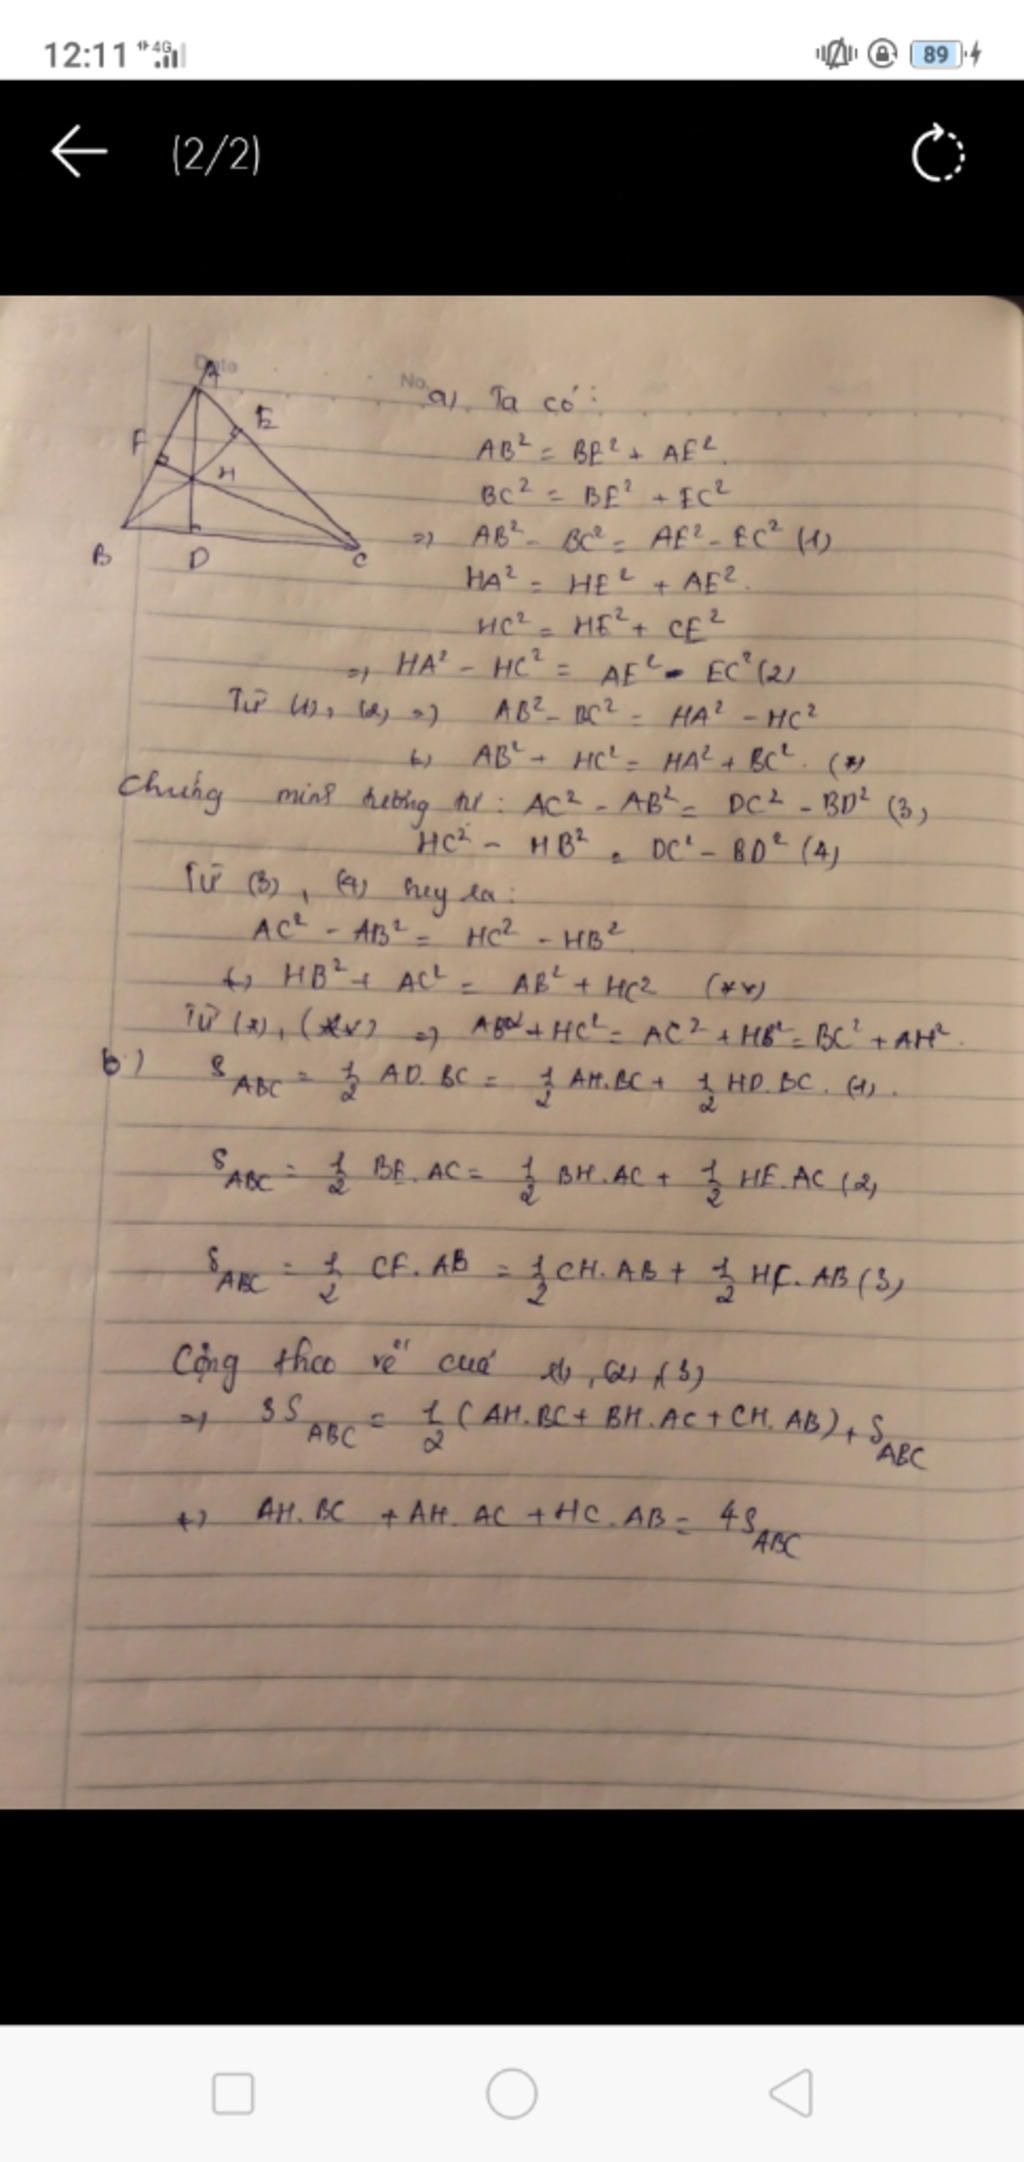 12:11 4G 89
(2/2)
Date No.
A
E
F
H
B D C
a). Ta có:
AB² = BE² + AE².
BC² = BE² + EC²
=> AB² - BC² = AE² - EC² (1)
HA² = HE² + AE².
HC² = HE² + CE²
=> HA² - HC² = AE² - EC² (2)
Từ (1), (2) => AB² - BC² = HA² - HC²
<=> AB² + HC² = HA² + BC². (*)
Chứng minh tương tự: AC² - AB² = DC² - BD² (3)
HC² - HB² = DC² - BD² (4)
Từ (3), (4) suy ra:
AC² - AB² = HC² - HB²
<=> HB² + AC² = AB² + HC² (**)
Từ (*), (**) => AB² + HC² = AC² + HB² = BC² + AH².
b) S ABC = 1/2 AD.BC = 1/2 AH.BC + 1/2 HD.BC. (1).
S ABC = 1/2 BE.AC = 1/2 BH.AC + 1/2 HE.AC (2)
S ABC = 1/2 CF.AB = 1/2 CH.AB + 1/2 HF.AB (3)
Cộng theo vế của (1), (2), (3)
=> 3S ABC = 1/2 (AH.BC + BH.AC + CH.AB) + S ABC
<=> AH.BC + AH.AC + HC.AB = 4S ABC